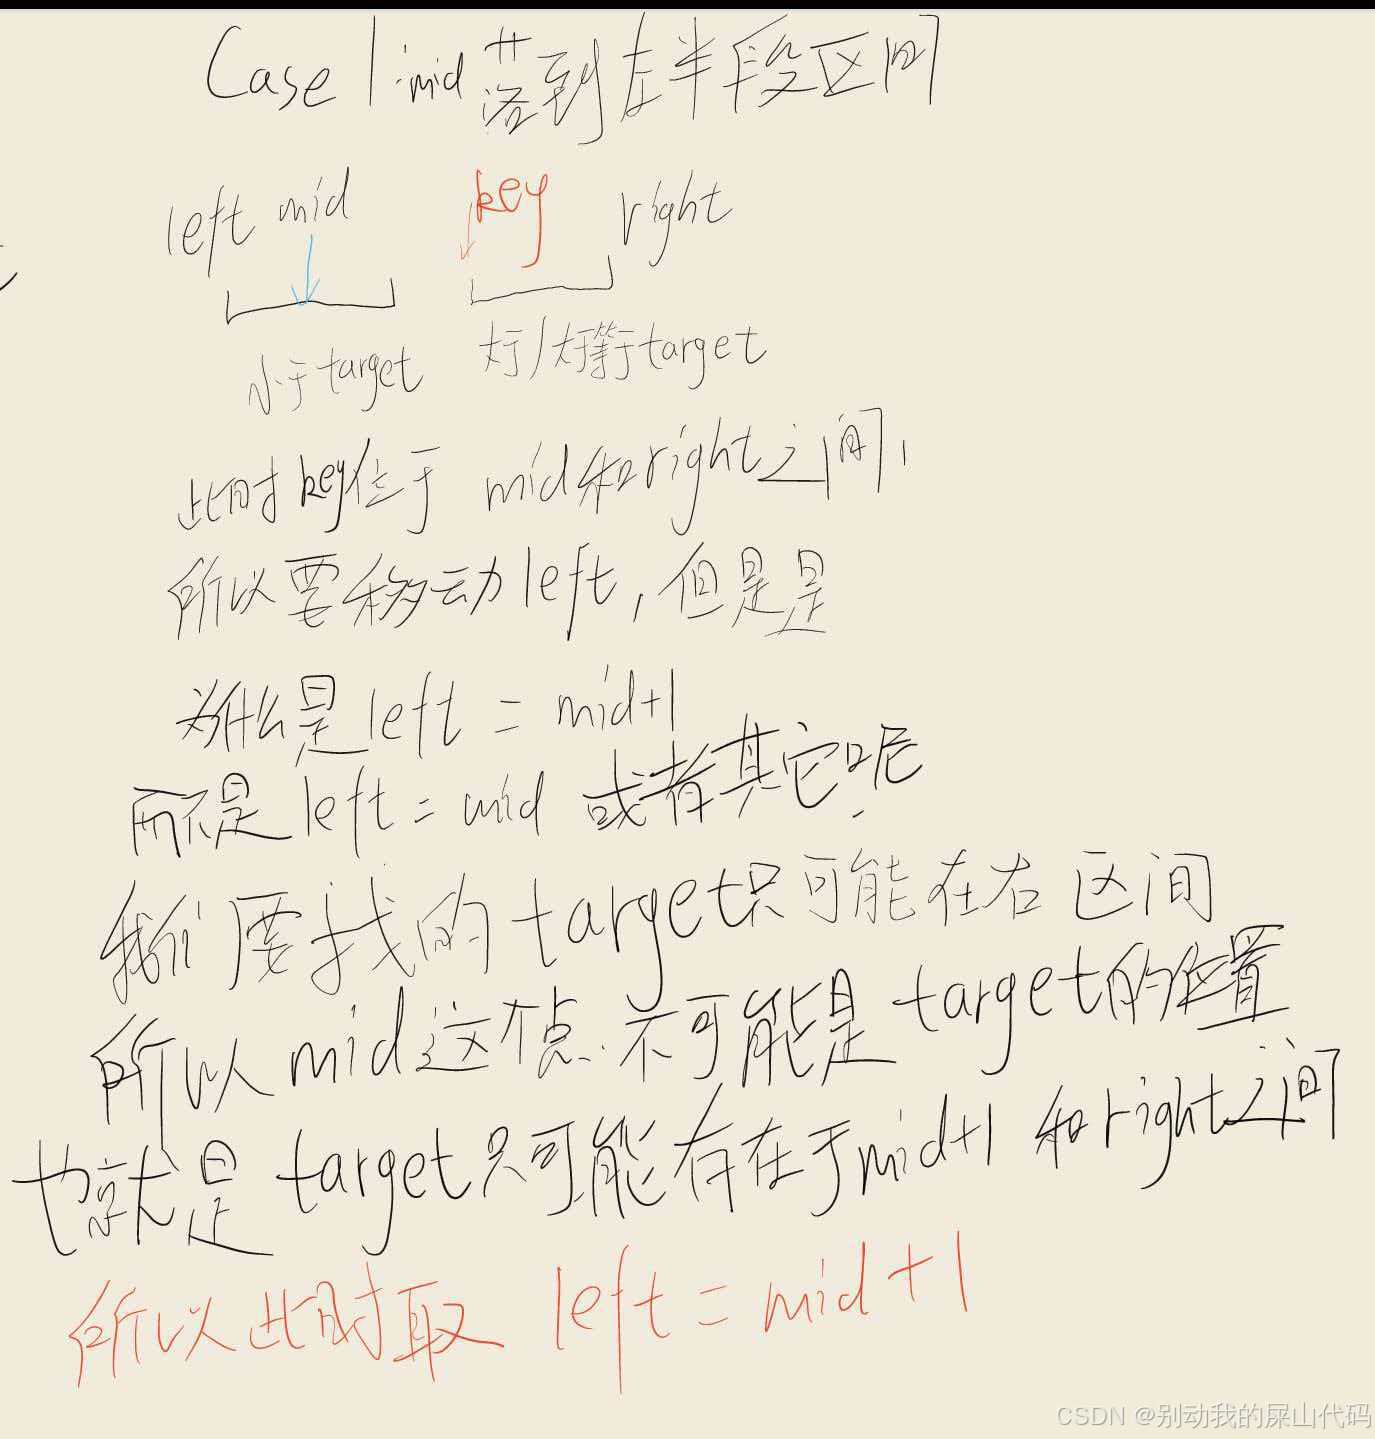 Case 1:mid落到左半段区间
left mid key right
小于target 大于/大于等于target
此时key位于 mid和right之间,
所以要移动left,但是是
为什么是left = mid+1
而不是left = mid 或者其它呢
我们要找的target只可能在右区间
所以mid这个点.不可能是target的位置
也就是target只可能存在于mid+1 和right之间
所以此时取 left = mid+1
CSDN @别动我的屎山代码